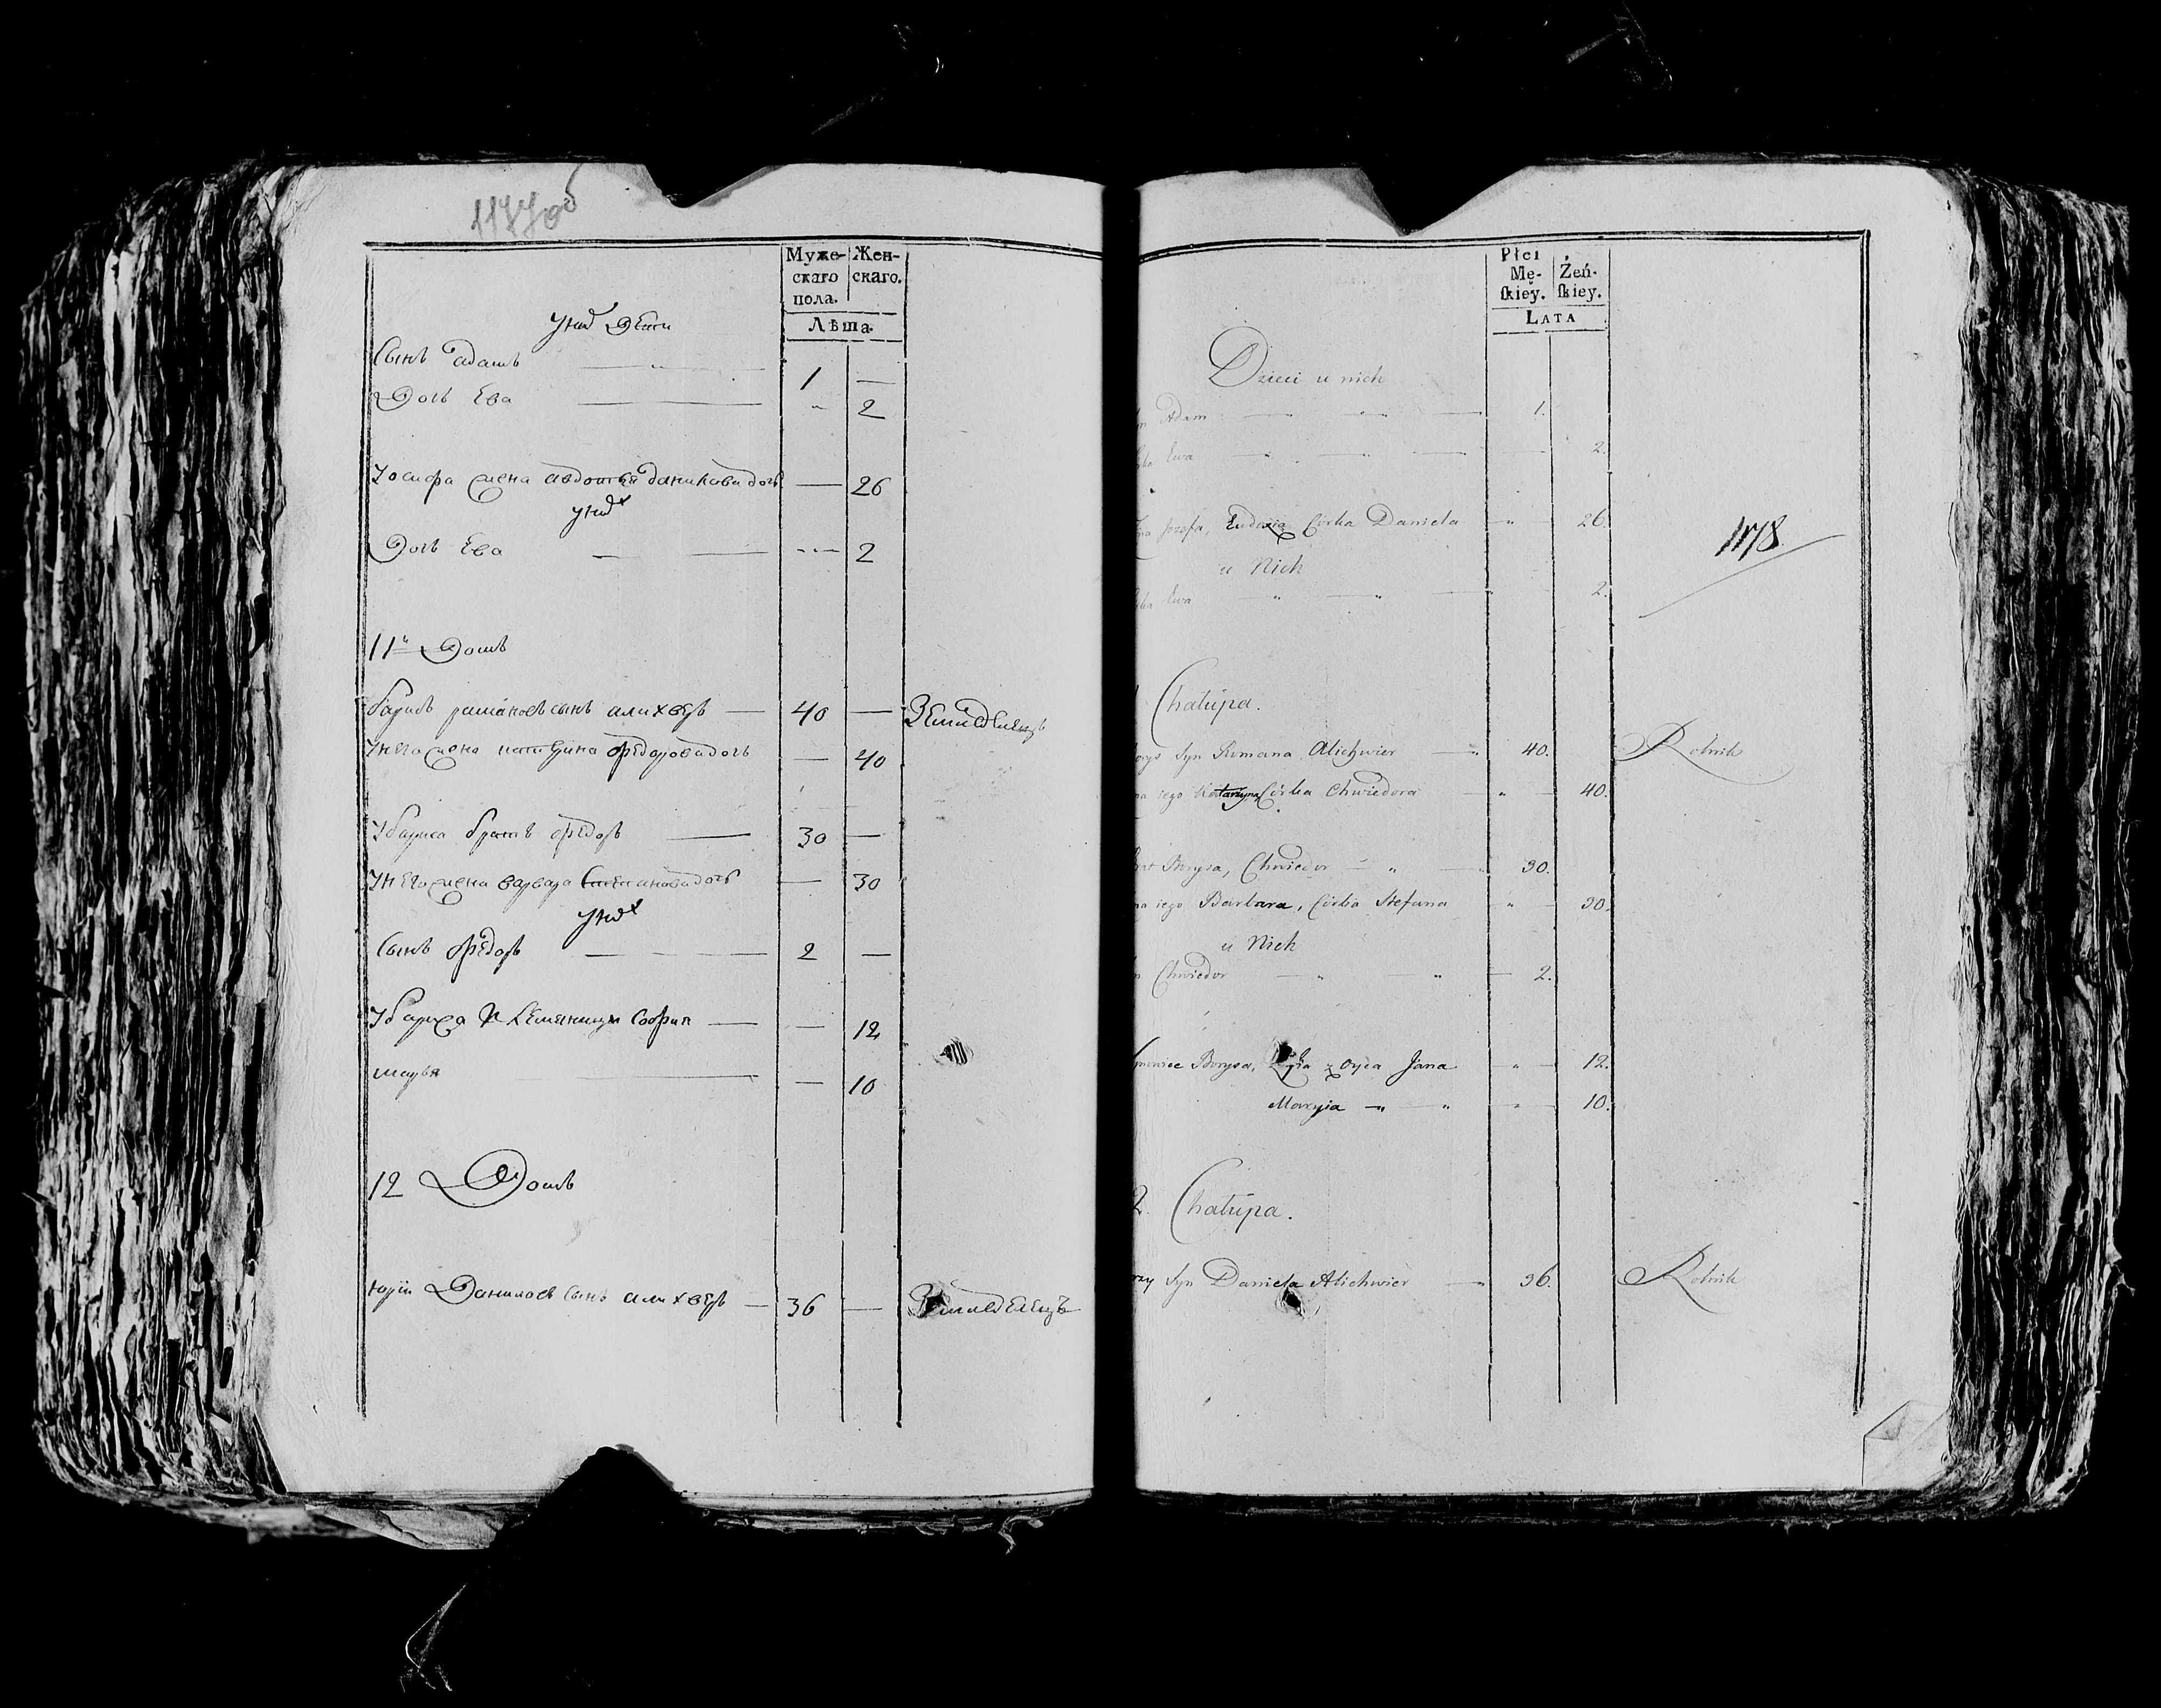 1177об
Муже-
скаго
пола.
Жен-
скаго.
Лѣта
У нихъ Дѣти
Сынъ адамъ 1 —
Дочь Ева " 2
Іосифа жена авдотья данилова дочь — 26
У нихъ
Дочь Ева 2
11й Домъ
барисъ рамановъ сынъ алихверъ — 40 — Земледелецъ
У него жена катерина федорова дочь — 40
У бариса братъ федоръ 30 —
У него жена варвара степанова дочь — 30
У нихъ
Сынъ федоръ 2 —
племяницы София — — 12
марья — 10
12 Домъ
юрiи Даниловъ сынъ алихверъ — 36 — Земледелецъ
Płci
Mę-
ſkiey.
Żeń-
ſkiey.
LATA
Dzieci u nich
Adam 1.
Ewa 2.
Jozefa, Eudoxia Córka Daniela " 26.
1178
u Nich
Ewa 2.
Chałupa.
Syn Romana Alichwier 40. Rolnik
iego Katarzyna Córka Chwiedora " 40.
Borysa, Chwiedor " 30.
iego Barbara, Córka Stefana " 30.
u Nich
Chwiedor 2.
Borysa, z oyca Jana " 12.
Maryia " " 10.
2. Chałupa.
Syn Daniela Alichwier 36. Rolnik